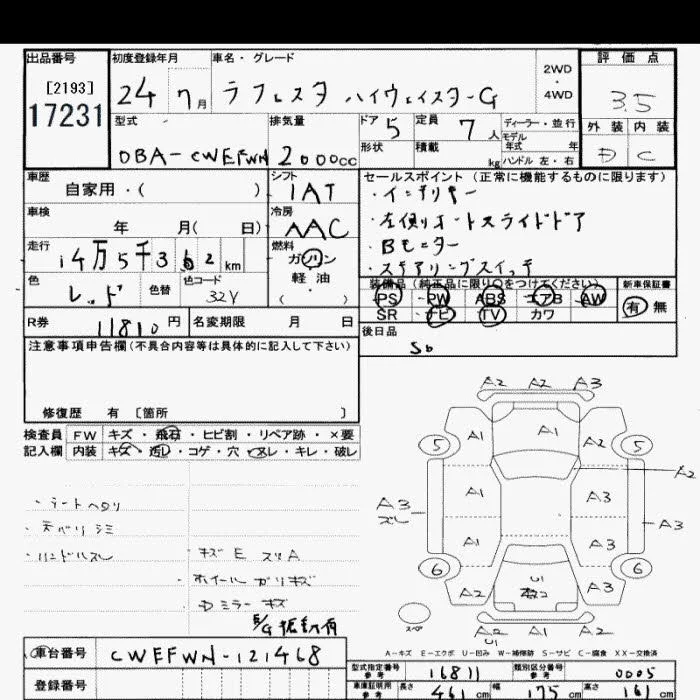 出品番号
[2193]
17231
初度登録年月
24 7月
車名・グレード
ラフェスタ ハイウェイスターG
2WD
・
4WD
評価点
3.5
外装 内装
D C
型式
DBA-CWEFWN
排気量
2000cc
ドア
5
定員
7人
形状
積載
kg
ディーラー・並行
モデル
年式 年
ハンドル 左・右
車歴
自家用・( )
シフト
IAT
車検
年 月( 日)
冷房
AAC
走行
14万5千362km
燃料
ガソリン
軽油
( )
色
レッド
色替
色コード
32V
セールスポイント(正常に機能するものに限ります)
・インテリキー
・左側オートスライドドア
・Bモニター
・ステアリングスイッチ
装備品(純正品に限り○をつけてください)
PS PW ABS エアB AW
SR ナビ TV カワ
新車保証書
有 無
R券
11810円
名変期限 月 日
後日品
注意事項申告欄(不具合内容等は具体的に記入して下さい)
修復歴 有 〔箇所 〕
検査員 FW キズ・飛石・ヒビ割・リペア跡・×要
記入欄 内装 キズ・汚レ・コゲ・穴・ヌレ・キレ・破レ
・シートヘタリ
・天ベリシミ
・ハンドルスレ
・キズ E スリA
・ホイール ガリキズ
・Dミラー キズ
E/G 振動有
A2 A2 A3
A1 A1 A2
5 5
A2
A1 A3
A3
ズレ
A3
A1 A3
6 6
A2 U1 A3
スペア
A2 U1 A2
U2
A-キズ E-エクボ U-凹み W-補修跡 S-サビ C-腐食 XX-交換済
車台番号
CWEFWN-121468
登録番号
型式指定番号
参考
16811
類別区分番号
参考
0005
車庫証明用
参考
長さ
461cm
幅
175cm
高さ
161cm